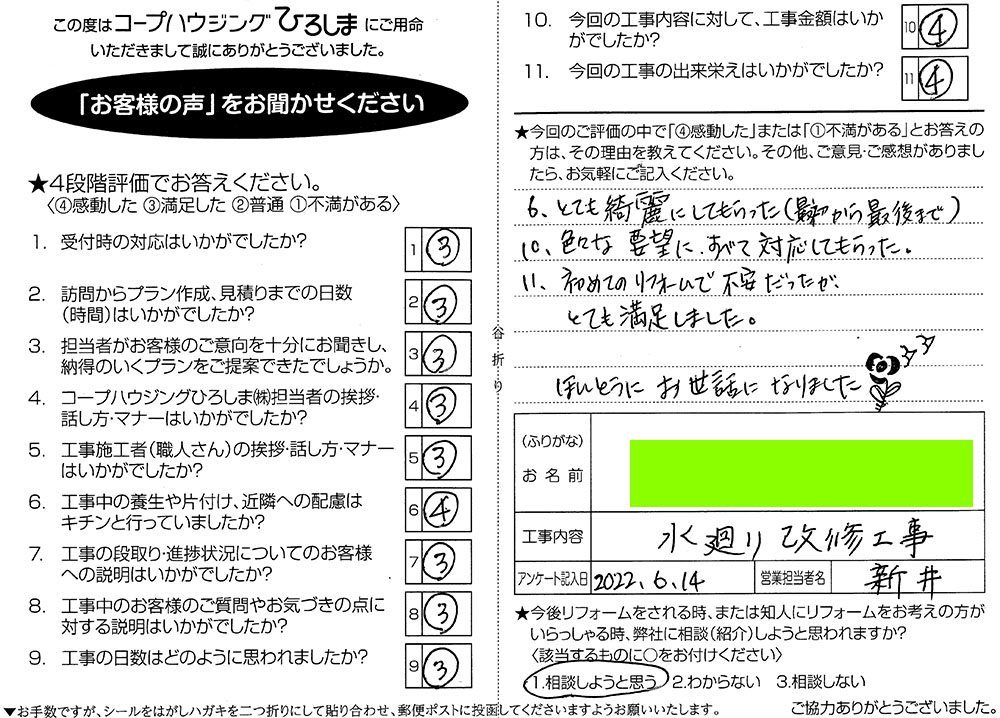 この度はコープハウジングひろしまにご用命
いただきまして誠にありがとうございました。
「お客様の声」をお聞かせください
★4段階評価でお答えください。
〈④感動した ③満足した ②普通 ①不満がある〉
1. 受付時の対応はいかがでしたか?
1 ③
2. 訪問からプラン作成、見積りまでの日数
(時間)はいかがでしたか?
2 ③
3. 担当者がお客様のご意向を十分にお聞きし、
納得のいくプランをご提案できたでしょうか。
3 ③
4. コープハウジングひろしま㈱担当者の挨拶・
話し方・マナーはいかがでしたか?
4 ③
5. 工事施工者(職人さん)の挨拶・話し方・マナー
はいかがでしたか?
5 ③
6. 工事中の養生や片付け、近隣への配慮は
キチンと行っていましたか?
6 ④
7. 工事の段取り・進捗状況についてのお客様
への説明はいかがでしたか?
7 ③
8. 工事中のお客様のご質問やお気づきの点に
対する説明はいかがでしたか?
8 ③
9. 工事の日数はどのように思われましたか?
9 ③
谷折り
10. 今回の工事内容に対して、工事金額はいか
がでしたか?
10 ④
11. 今回の工事の出来栄えはいかがでしたか?
11 ④
★今回のご評価の中で「④感動した」または「①不満がある」とお答えの
方は、その理由を教えてください。その他、ご意見・ご感想がありまし
たら、お気軽にご記入ください。
6、とても綺麗にしてもらった(最初から最後まで)
10、色々な要望に、すべて対応してもらった。
11、初めてのリフォームで不安だったが、
とても満足しました。
ほんとうにお世話になりました
(ふりがな)
お名前
工事内容 水廻り改修工事
アンケート記入日 2022.6.14 営業担当者名 新井
★今後リフォームをされる時、または知人にリフォームをお考えの方が
いらっしゃる時、弊社に相談(紹介)しようと思われますか?
〈該当するものに○をお付けください〉
1.相談しようと思う 2.わからない 3.相談しない
▼お手数ですが、シールをはがしハガキを二つ折りにして貼り合わせ、郵便ポストに投函してくださいますようお願いいたします。
ご協力ありがとうございました。